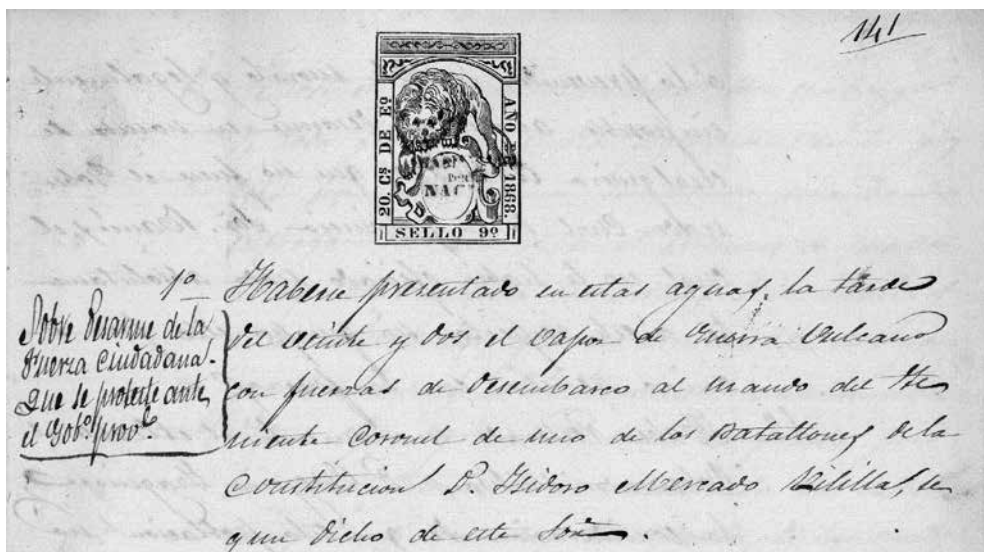 141
20. Cs DE Eo
AÑO DE 1868.
NAC
SELLO 9º
1º
Sobre Desarme de la
Fuerza Ciudadana.
Que se proteste ante
el Gobº provl.
Haberse presentado en estas aguas, la tarde
del veinte y dos el vapor de Guerra Vulcano
con fuerzas de desembarco al mando del The
niente Coronel de uno de los Batallones de la
Constitucion D. Isidoro Mercado Vililla, se
gun dicho de este Sor.